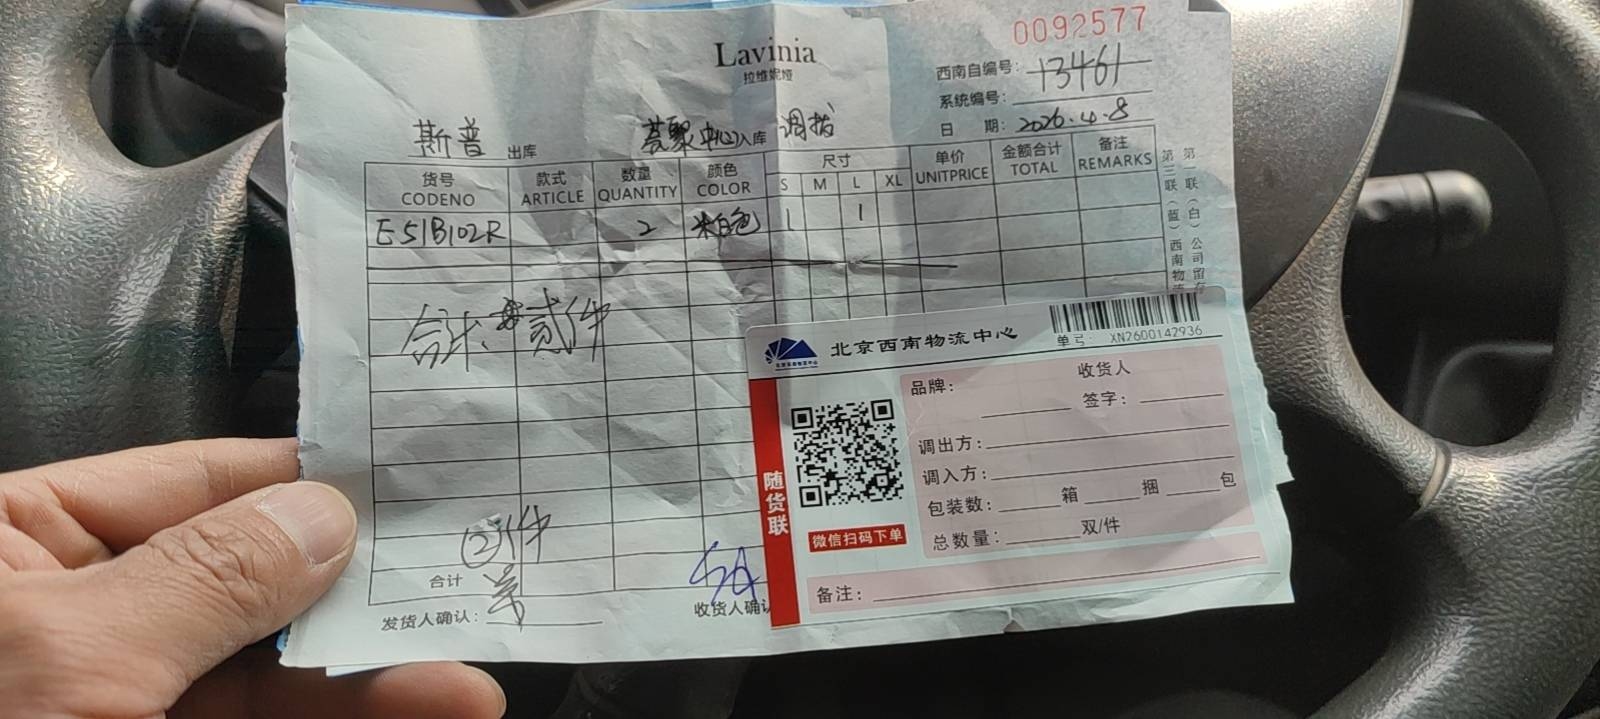 0092577
Lavinia
拉维妮娅
西南自编号: 13461
系统编号:
日 期: 2026.4.8
斯普 出库 荟聚中心入库 调拨
货号 款式 数量 颜色 尺寸 单价 金额合计 备注
CODENO ARTICLE QUANTITY COLOR S M L XL UNITPRICE TOTAL REMARKS
E51B102R 2 米白色 1 1
合计: 贰件
②件
合计
发货人确认:
收货人确认
第一联(白)公司留存
第三联(蓝)西南物流
北京西南物流中心
单号: XN2600142936
随货联
微信扫码下单
品牌:
收货人
签字:
调出方:
调入方:
包装数: 箱 捆 包
总数量: 双/件
备注: